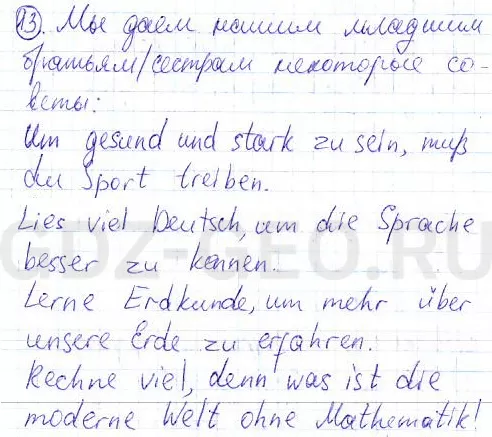 13. Мы даем нашим младшим
братьям/сестрам некоторые со-
веты:
Um gesund und stark zu sein, muß
du Sport treiben.
Lies viel Deutsch, um die Sprache
besser zu kennen.
Lerne Erdkunde, um mehr über
unsere Erde zu erfahren.
Rechne viel, denn was ist die
moderne Welt ohne Mathematik!
GDZ-GEO.RU